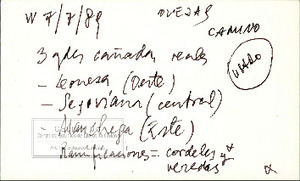 W 7/7/89 OVEJAS
CAMINO
3 gdes cañadas reales USADO
- leonesa (Oeste)
- Segoviana (central)
- Manchega (Este)
Ramificaciones = cordeles y
veredas